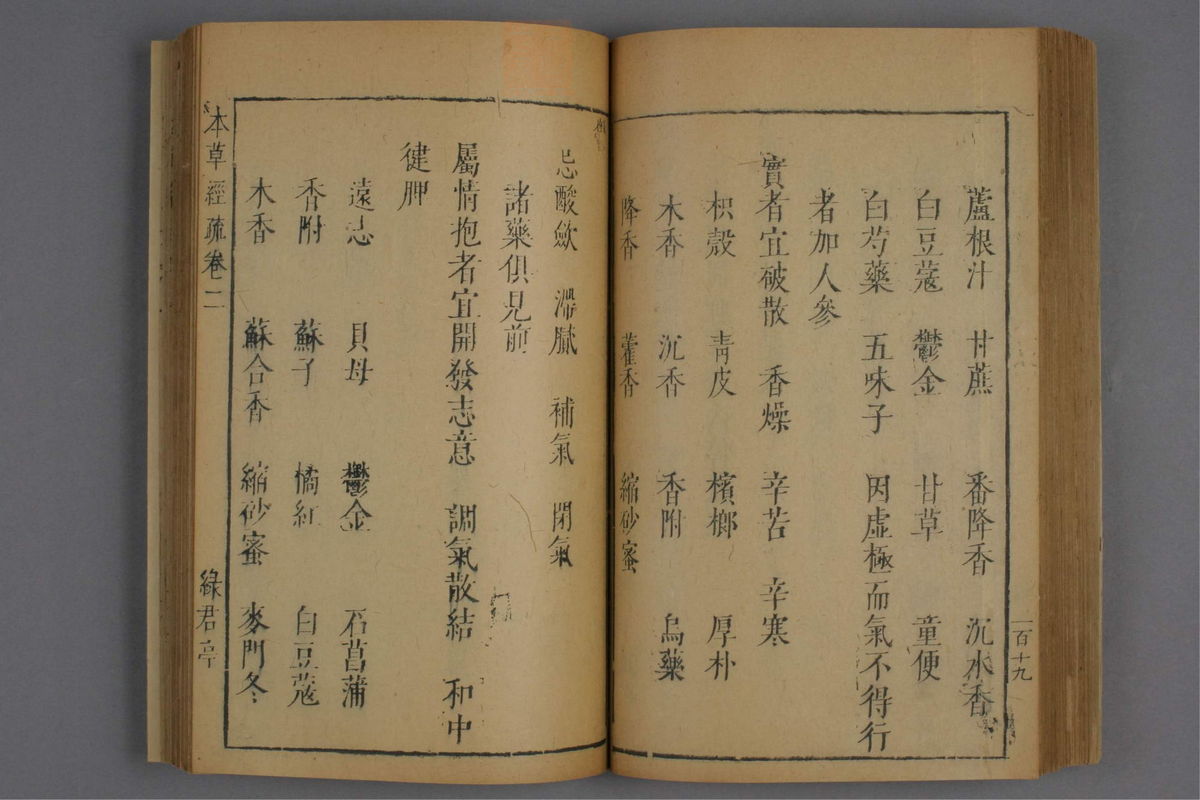 蘆根汁 甘蔗 番降香 沉水香
白豆蔻 鬱金 甘草 童便
白芍藥 五味子 因虛極而氣不得行
者加人參
實者宜破散 香燥 辛苦 辛寒
枳殼 青皮 檳榔 厚朴
木香 沉香 香附 烏藥
降香 藿香 縮砂蜜
一百十九
忌酸斂 滯膩 補氣 閉氣
諸藥俱見前
屬情抱者宜開發志意 調氣散結 和中
健脾
遠志 貝母 鬱金 石菖蒲
香附 蘇子 橘紅 白豆蔻
木香 蘇合香 縮砂蜜 麥門冬
本草經疏卷二 綠君亭